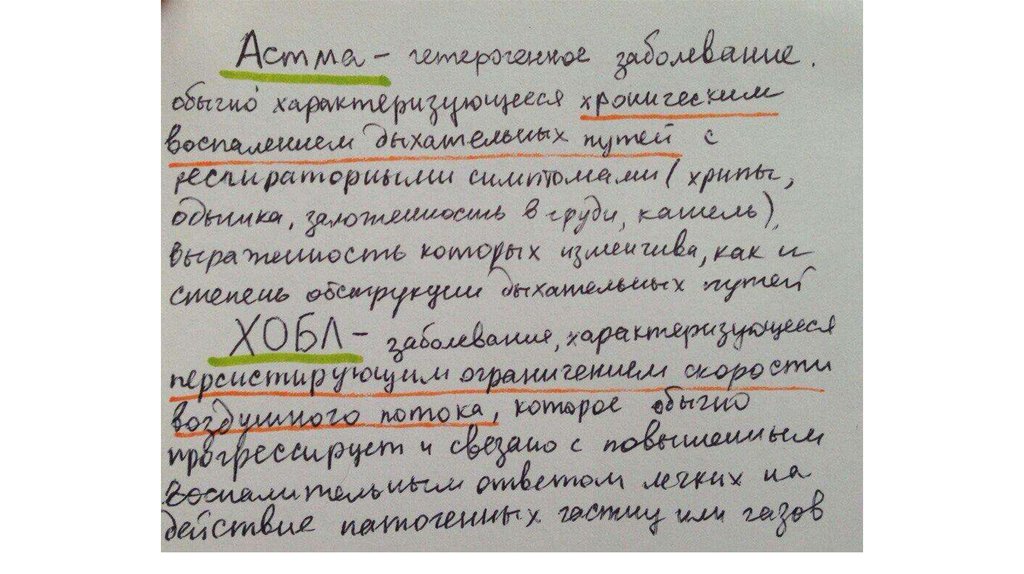 Астма - гетерогенное заболевание.
обычно характеризующееся хроническим
воспалением дыхательных путей с
респираторными симптомами (хрипы,
одышка, заложенность в груди, кашель),
выраженность которых изменчива, как и
степень обструкции дыхательных путей
ХОБЛ - заболевание, характеризующееся
персистирующим ограничением скорости
воздушного потока, которое обычно
прогрессирует и связано с повышенным
воспалительным ответом легких на
действие патогенных частиц или газов